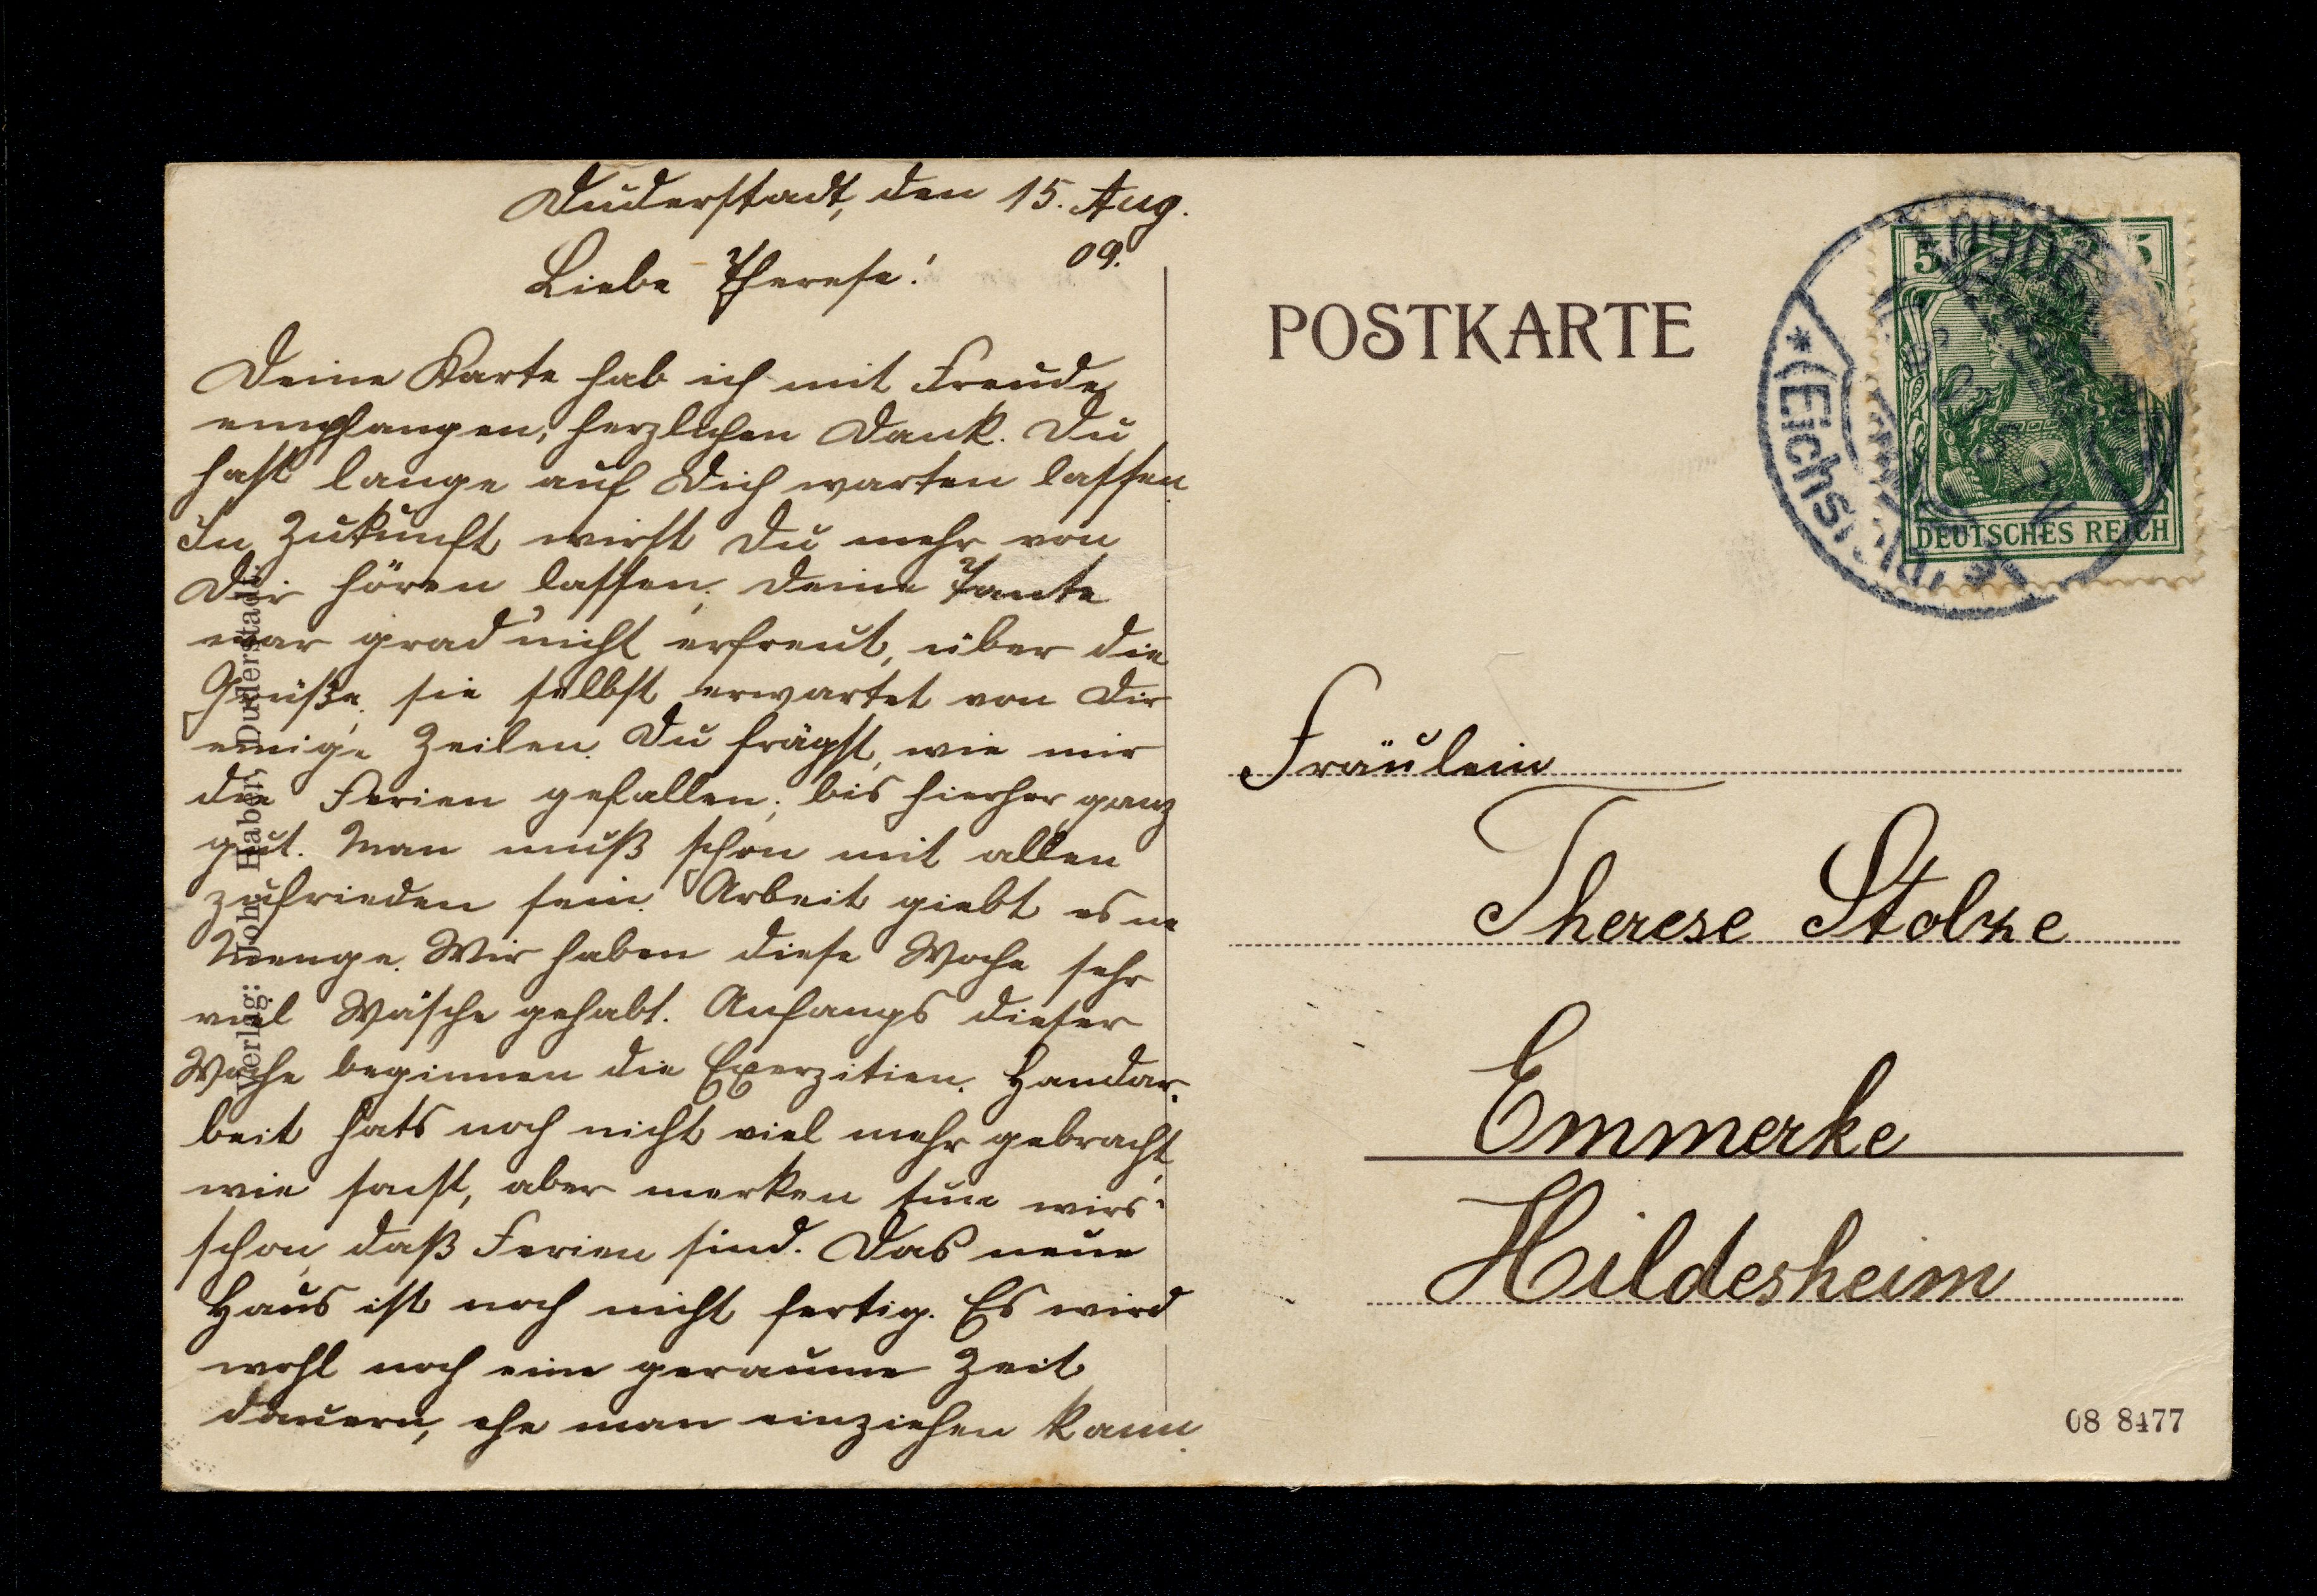 Duderstadt, den 15. Aug.
09.
Liebe Therese!
Deine Karte hab ich mit Freude
empfangen, herzlichen Dank. Du
hast lange auf Dich warten lassen.
In Zukunft wirst Du mehr von
Dir hören lassen. Deine Tante
war grad nicht erfreut, über die
Grüße, sie selbst erwartet von Dir
einige Zeilen. Du frägst, wie mir
die Ferien gefallen; bis hierher ganz
gut. Man muß schon mit allen
zufrieden sein. Arbeit giebt es ne
Menge. Wir haben diese Woche sehr
viel Wäsche gehabt. Anfangs dieser
Woche beginnen die Exerzitien. Handar-
beit hats noch nicht viel mehr gebracht,
wie sonst, aber merken tun wirs
schon, daß Ferien sind. Das neue
Haus ist noch nicht fertig. Es wird
wohl noch eine geraume Zeit
dauern, ehe man einziehen kann.
Verlag: Joh. Haber, Duderstadt.
POSTKARTE
5 5
DEUTSCHES REICH
* (Eichsfeld) *
Fräulein
Therese Stolze
Emmerke
Hildesheim
08 8477